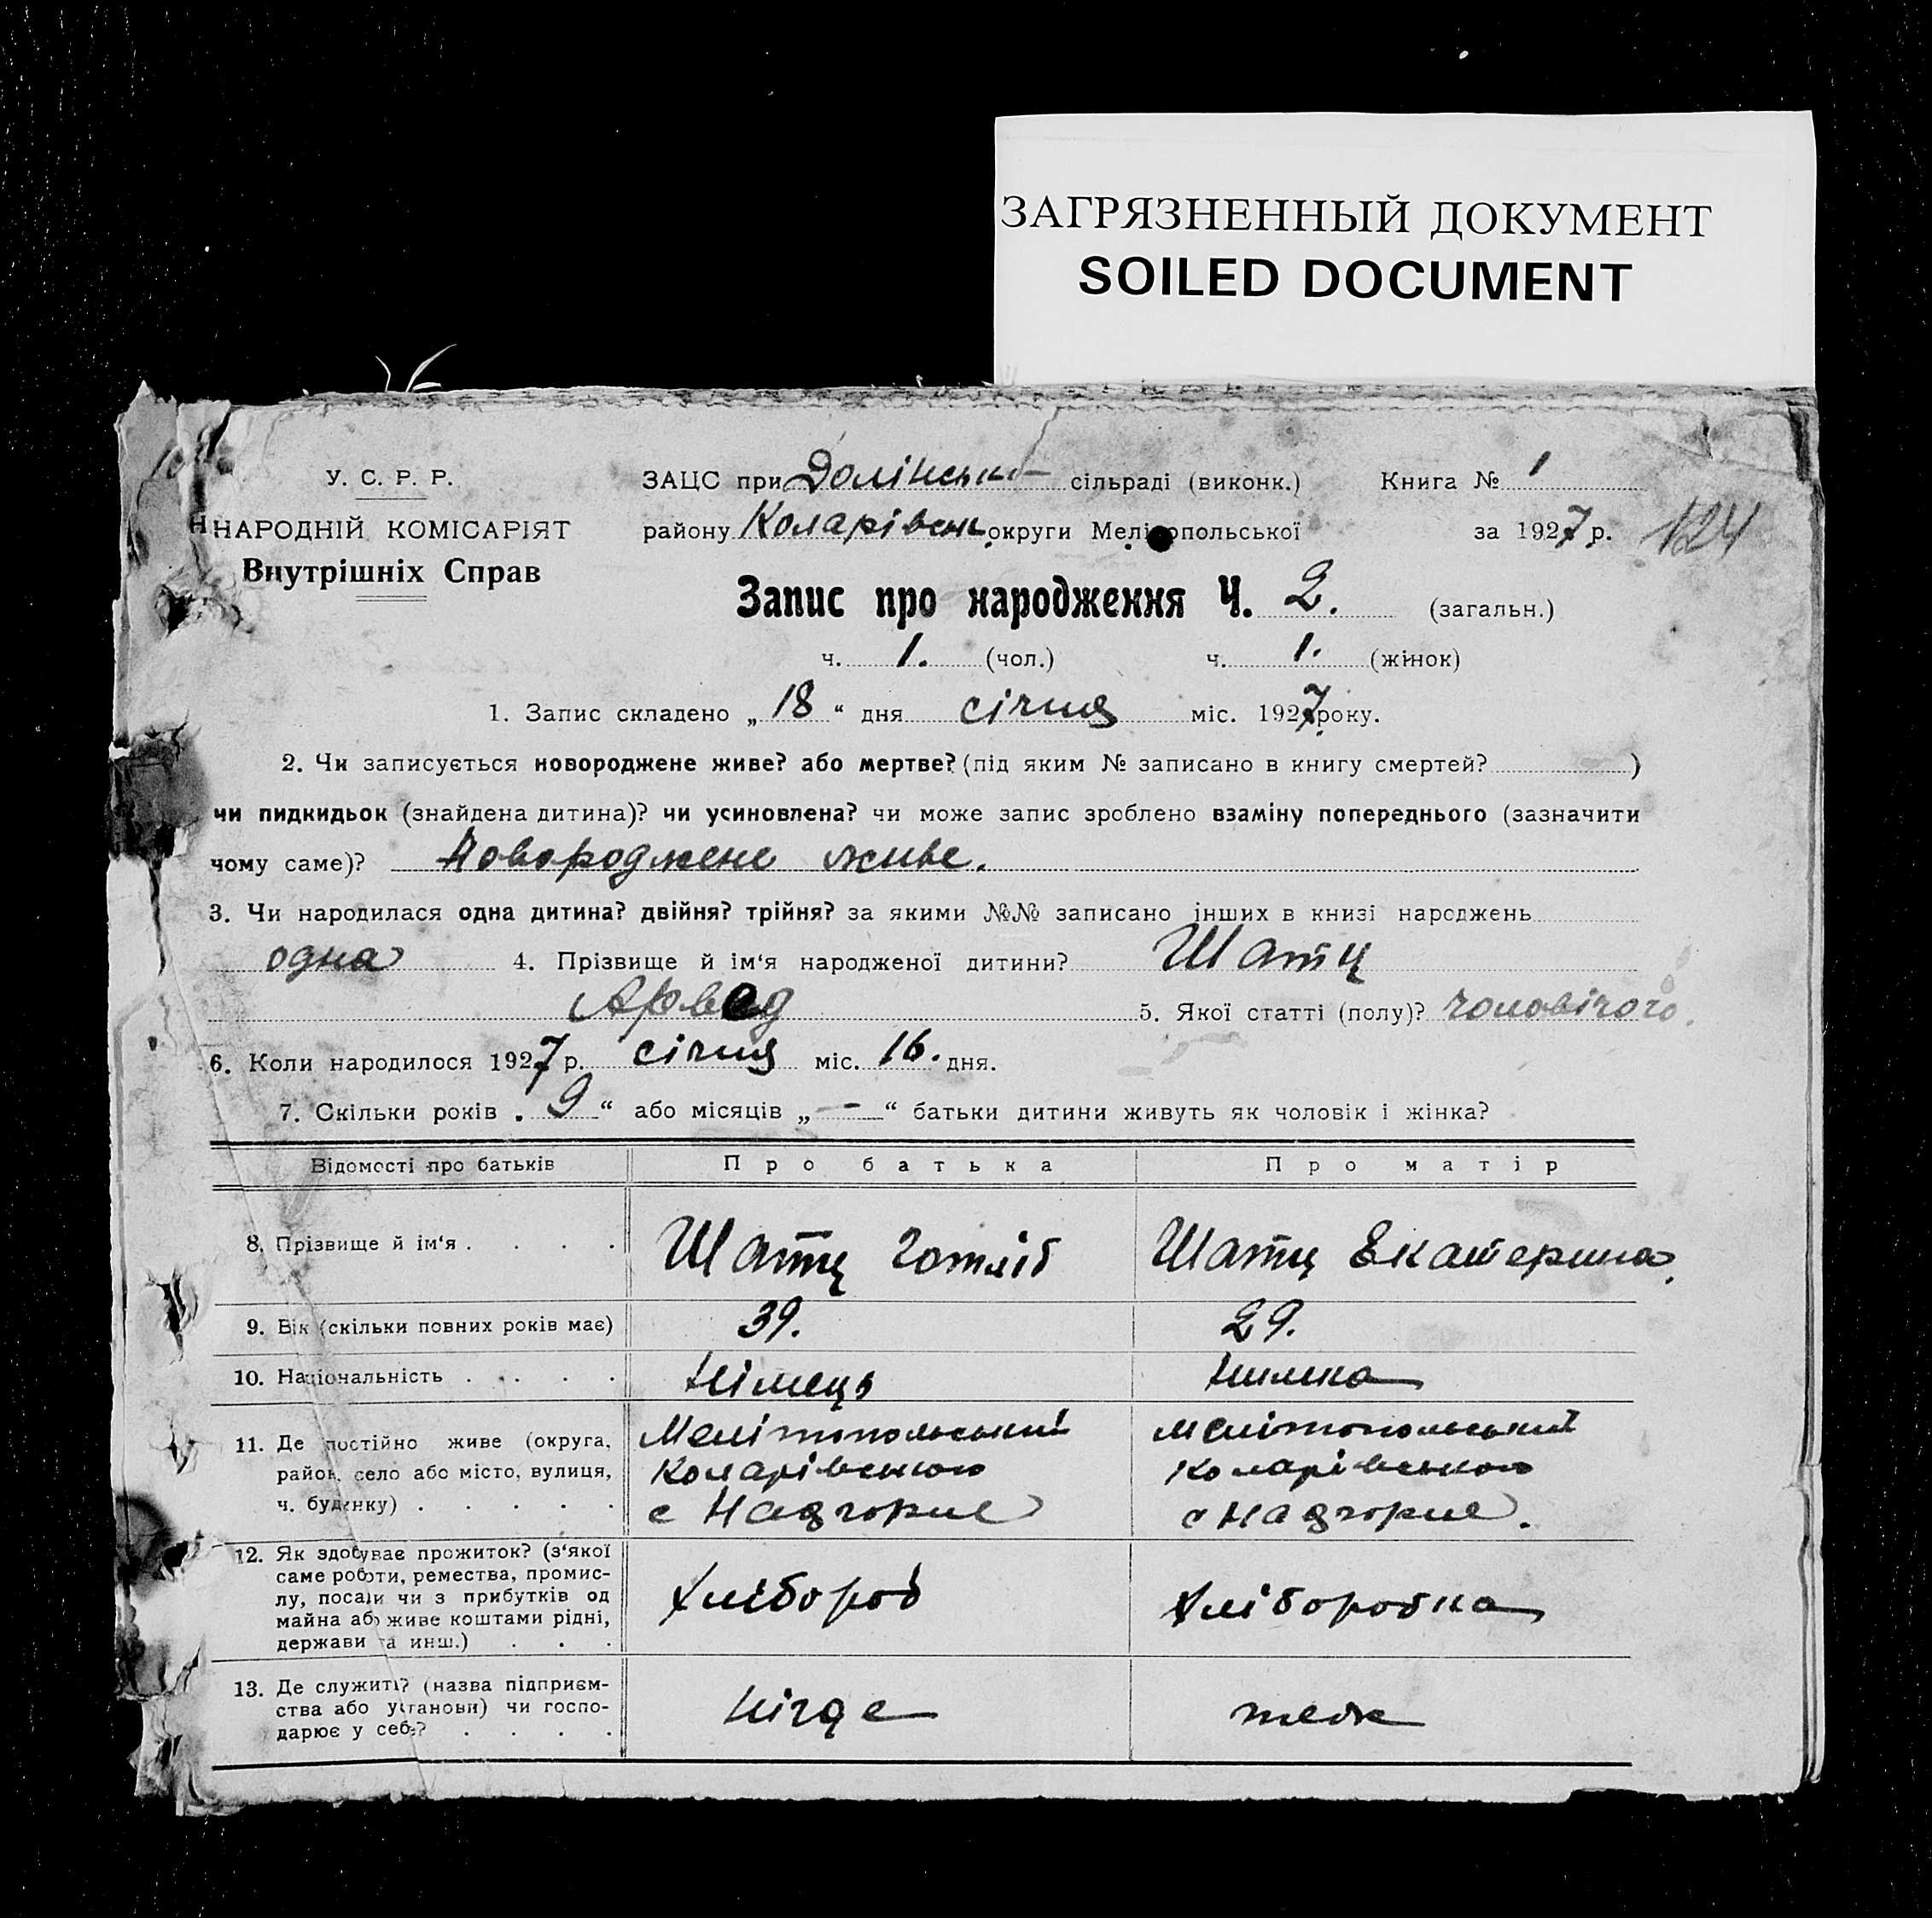 ЗАГРЯЗНЕННЫЙ ДОКУМЕНТ
SOILED DOCUMENT
У. С. Р. Р.
ЗАЦС при Долінській сільраді (виконк.) Книга № 1
НАРОДНІЙ КОМІСАРІЯТ
району Коларівськ округи Мелітопольської за 1927 р. 124
Внутрішніх Справ
Запис про народження Ч. 2. (загальн.)
ч. 1. (чол.) ч. 1. (жінок)
1. Запис складено „18“ дня січня міс. 1927 року.
2. Чи записується новороджене живе? або мертве? (під яким № записано в книгу смертей? )
чи пидкидьок (знайдена дитина)? чи усиновлена? чи може запис зроблено взаміну попереднього (зазначити
чому саме)? Новороджене живе.
3. Чи народилася одна дитина? двійня? трійня? за якими №№ записано інших в книзі народжень
одна 4. Прізвище й ім‘я народженої дитини? Шатц
Арвед 5. Якої статті (полу)? чоловічого.
6. Коли народилося 1927 р. січня міс. 16. дня.
7. Скільки років „9“ або місяців „—“ батьки дитини живуть як чоловік і жінка?
Відомості про батьків Про батька Про матір
8. Прізвище й ім‘я . . . . . Шатц Готліб Шатц Екатерина.
9. Вік (скільки повних років має) 39. 29.
10. Національність . . . . . Німець Нимка
11. Де постійно живе (округа, Мелітопольський Мелітопольський
район, село або місто, вулиця, Коларівського Коларівського
ч. будинку) . . . . . с Надгорне с Надгорне.
12. Як здобуває прожиток? (з‘якої
саме роботи, ремества, промис-
лу, посади чи з прибутків од Хлібороб Хліборобка
майна або живе коштами рідні,
держави та инш.) . . .
13. Де служить? (назва підприєм-
ства або установи) чи госпо- Нігде теж
дарює у себе? . . . .